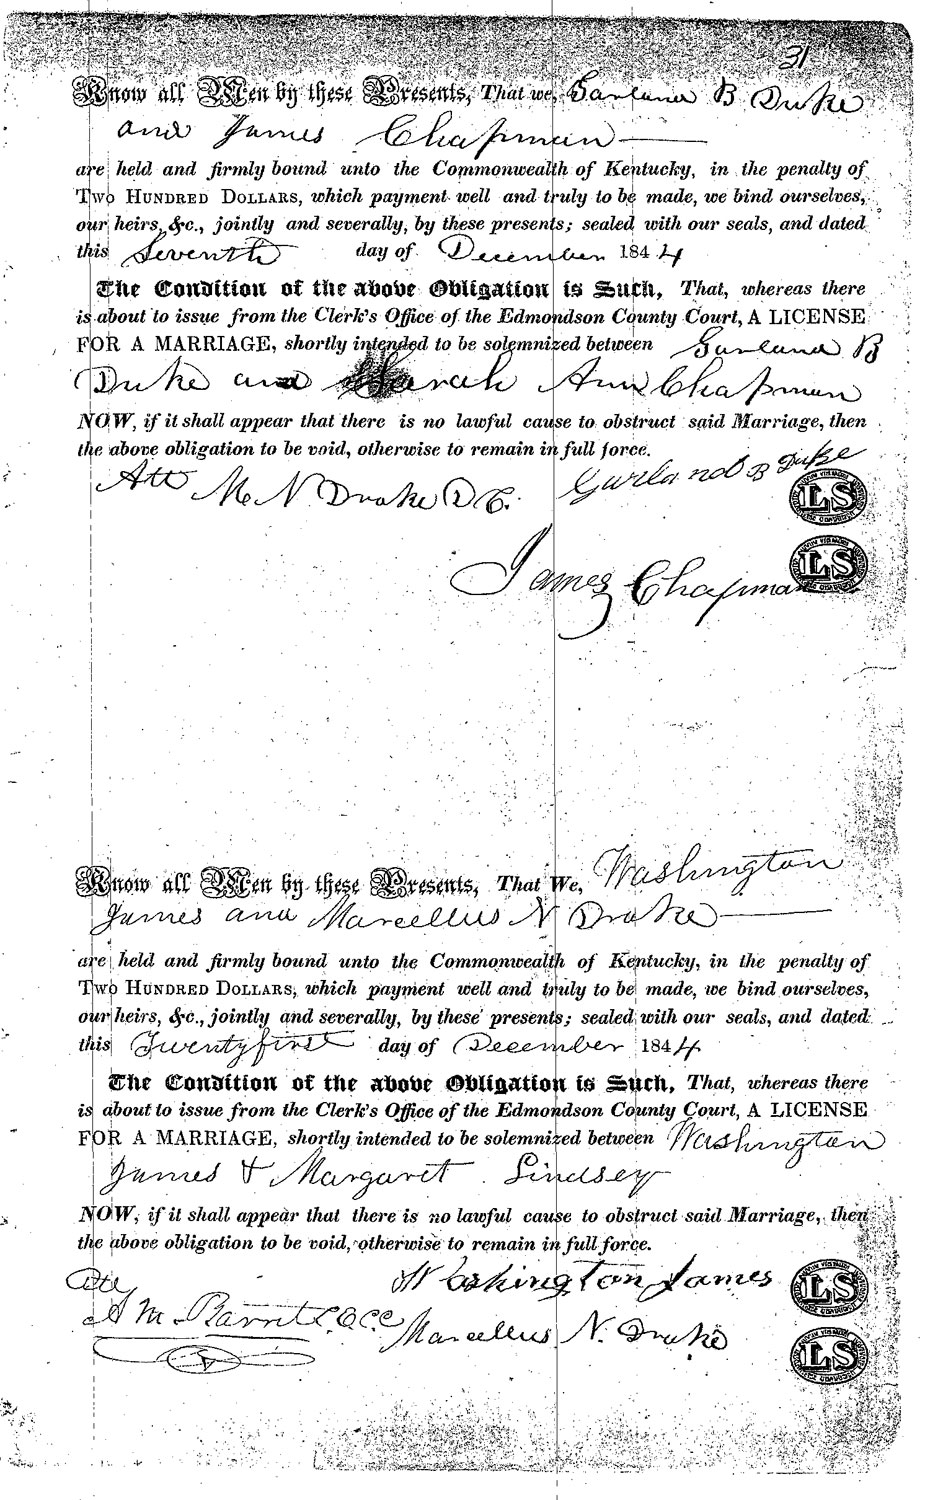 31
Know all Men by these Presents, That we, Garland B Duke
and James Chapman
are held and firmly bound unto the Commonwealth of Kentucky, in the penalty of
Two Hundred Dollars, which payment well and truly to be made, we bind ourselves,
our heirs, &c., jointly and severally, by these presents; sealed with our seals, and dated
this Seventh day of December 1844
The Condition of the above Obligation is Such, That, whereas there
is about to issue from the Clerk's Office of the Edmondson County Court, A LICENSE
FOR A MARRIAGE, shortly intended to be solemnized between Garland B
Duke and Sarah Ann Chapman
NOW, if it shall appear that there is no lawful cause to obstruct said Marriage, then
the above obligation to be void, otherwise to remain in full force.
Att M N Drake D C. Garland B Duke LS
James Chapman LS
Know all Men by these Presents, That We, Washington
James and Marcellus N Drake
are held and firmly bound unto the Commonwealth of Kentucky, in the penalty of
Two Hundred Dollars, which payment well and truly to be made, we bind ourselves,
our heirs, &c., jointly and severally, by these presents; sealed with our seals, and dated
this Twenty first day of December 1844
The Condition of the above Obligation is Such, That, whereas there
is about to issue from the Clerk's Office of the Edmondson County Court, A LICENSE
FOR A MARRIAGE, shortly intended to be solemnized between Washington
James & Margaret Lindsey
NOW, if it shall appear that there is no lawful cause to obstruct said Marriage, then
the above obligation to be void, otherwise to remain in full force.
Washington James LS
Marcellus N. Drake LS